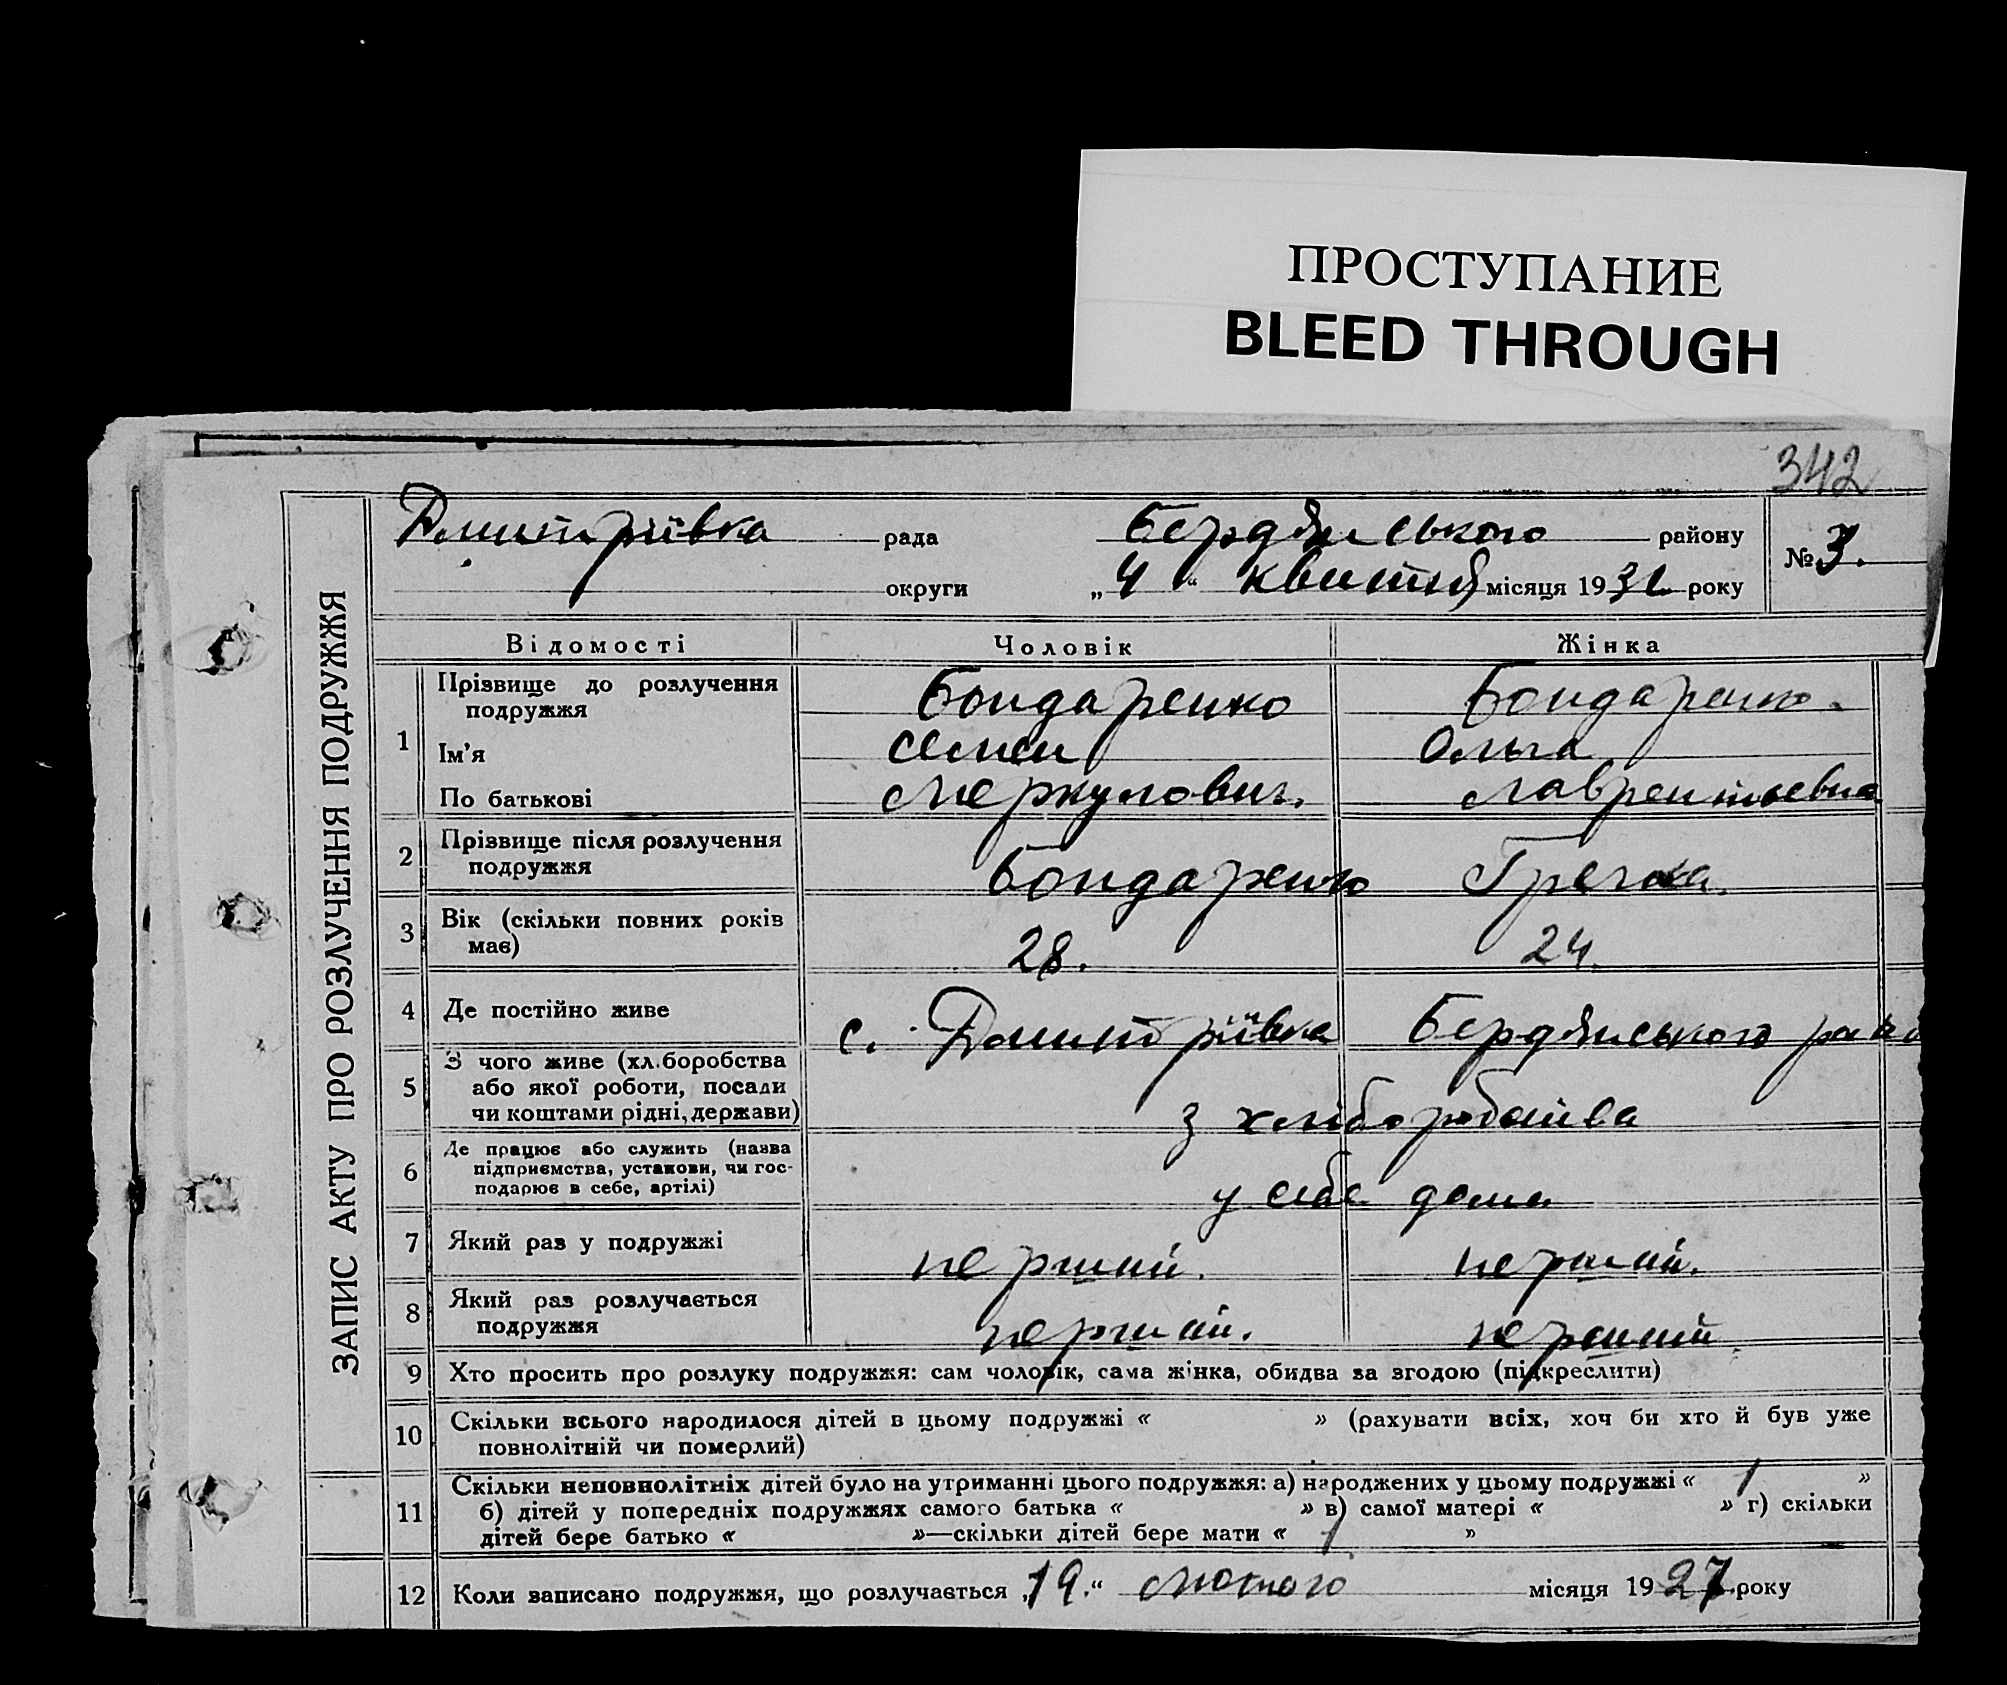 ПРОСТУПАНИЕ
BLEED THROUGH
342
ЗАПИС АКТУ ПРО РОЗЛУЧЕННЯ ПОДРУЖЖЯ
Дмитріївка рада Бердянського району №3.
округи „4“ квітня місяця 1931 року
Відомості Чоловік Жінка
1 Прізвище до розлучення подружжя Бондаренко Бондаренко.
Ім'я Семен Ольга
По батькові Меркулович. Лаврентьевна
2 Прізвище після розлучення
подружжя Бондаренко Гречка.
3 Вік (скільки повних років
має) 28. 24.
4 Де постійно живе с. Дмитріївка Бердянського
5 З чого живе (хл.боробства
або якої роботи, посади
чи коштами рідні, держави) з хліборобства
6 Де працює або служить (назва
підприємства, установи, чи гос-
подарює в себе, артілі) у себе дома
7 Який раз у подружжі перший. перший.
8 Який раз розлучається
подружжя перший. перший
9 Хто просить про розлуку подружжя: сам чоловік, сама жінка, обидва за згодою (підкреслити)
10 Скільки всього народилося дітей в цьому подружжі « » (рахувати всіх, хоч би хто й був уже
повнолітній чи померлий)
11 Скільки неповнолітніх дітей було на утриманні цього подружжя: а) народжених у цьому подружжі « 1 »
б) дітей у попередніх подружжях самого батька « » в) самої матері « » г) скільки
дітей бере батько « »—скільки дітей бере мати « 1 »
12 Коли записано подружжя, що розлучається „19.“ лютого місяця 1927. року